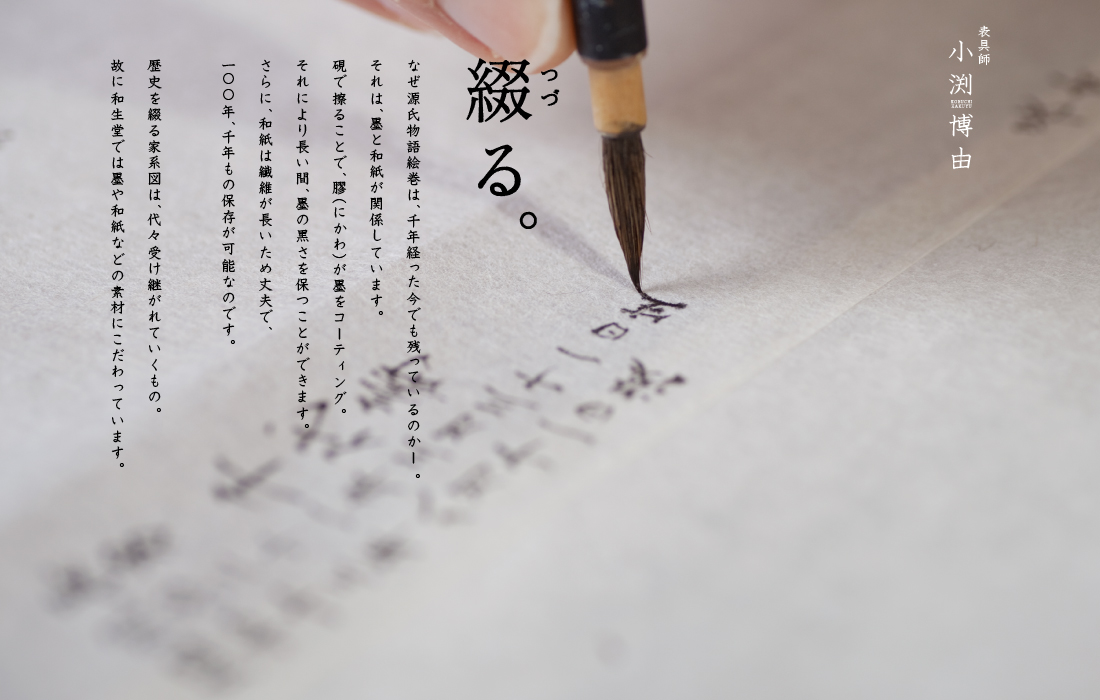 表具師
小渕博由
つづ
綴る。
なぜ源氏物語絵巻は、千年経った今でも残っているのかー。
それは、墨と和紙が関係しています。
硯で擦ることで、膠(にかわ)が墨をコーティング。
それにより長い間、墨の黒さを保つことができます。
さらに、和紙は繊維が長いため丈夫で、
一〇〇年、千年もの保存が可能なのです。
歴史を綴る家系図は、代々受け継がれていくもの。
故に和生堂では墨や和紙などの素材にこだわっています。